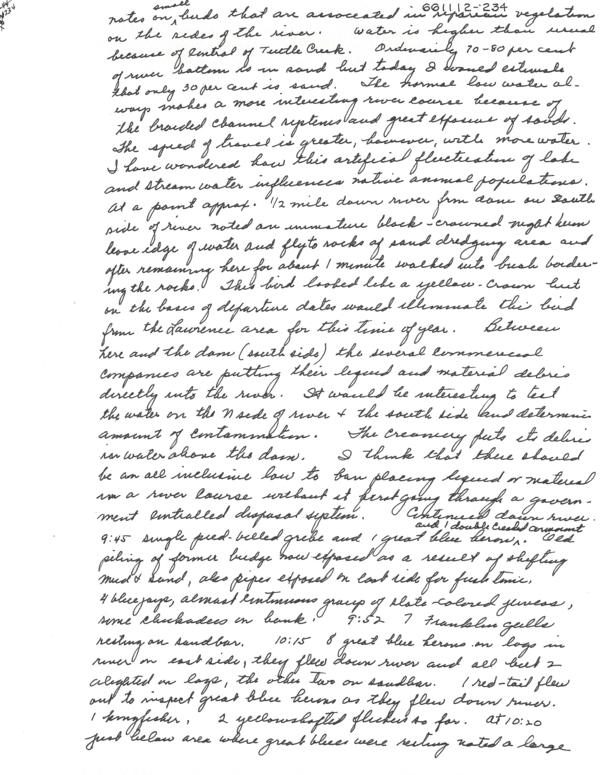 661112-234
small
notes on birds that are associated in riparian vegetation
on the sides of the river. Water is higher than usual
because of control of Tuttle Creek. Ordinarily 70-80 per cent
of river bottom is in sand but today I would estimate
that only 30 per cent is sand. The normal low water al-
ways makes a more interesting river course because of
the braided channel systems and great expanse of sands.
The speed of travel is greater, however, with more water.
I have wondered how this artificial fluctuation of lake
and stream water influences native animal populations.
At a point approx. 1/2 mile down river from dam on South
side of river noted an immature black-crowned night heron
leave edge of water and fly to rocks of sand dredging area and
after remaining here for about 1 minute walked into bush border-
ing the rocks. This bird looked like a yellow-crown but
on the bases of departure dates would illiminate this bird
from the Lawrence area for this time of year. Between
here and the dam (south side) the several commercial
companies are putting their liquid and material debris
directly into the river. It would be interesting to test
the water on the N side of river + the south side and determine
amount of contamination. The creamery puts its debris
in water above the dam. I think that there should
be an all inclusive law to ban placing liquid or material
in a river course without it first going through a govern-
ment controlled disposal system. Continued down river.
and 1 double crested cormorant
9:45 single pied-billed grebe and 1 great blue heron. Old
piling of former bridge now exposed as a result of shifting
mud + sand, also pipes exposed on east side for first time.
4 blue jays, almost continuous group of slate-colored juncos,
some chickadees on bank. 9:52 7 Franklin gulls
resting on sandbar. 10:15 8 great blue herons on logs in
river on east side, they flew down river and all but 2
alighted on logs, the other two on sandbar. 1 red-tail flew
out to inspect great blue herons as they flew down river.
1 kingfisher, 2 yellowshafted flickers so far. At 10:20
just below area where great blues were resting noted a large